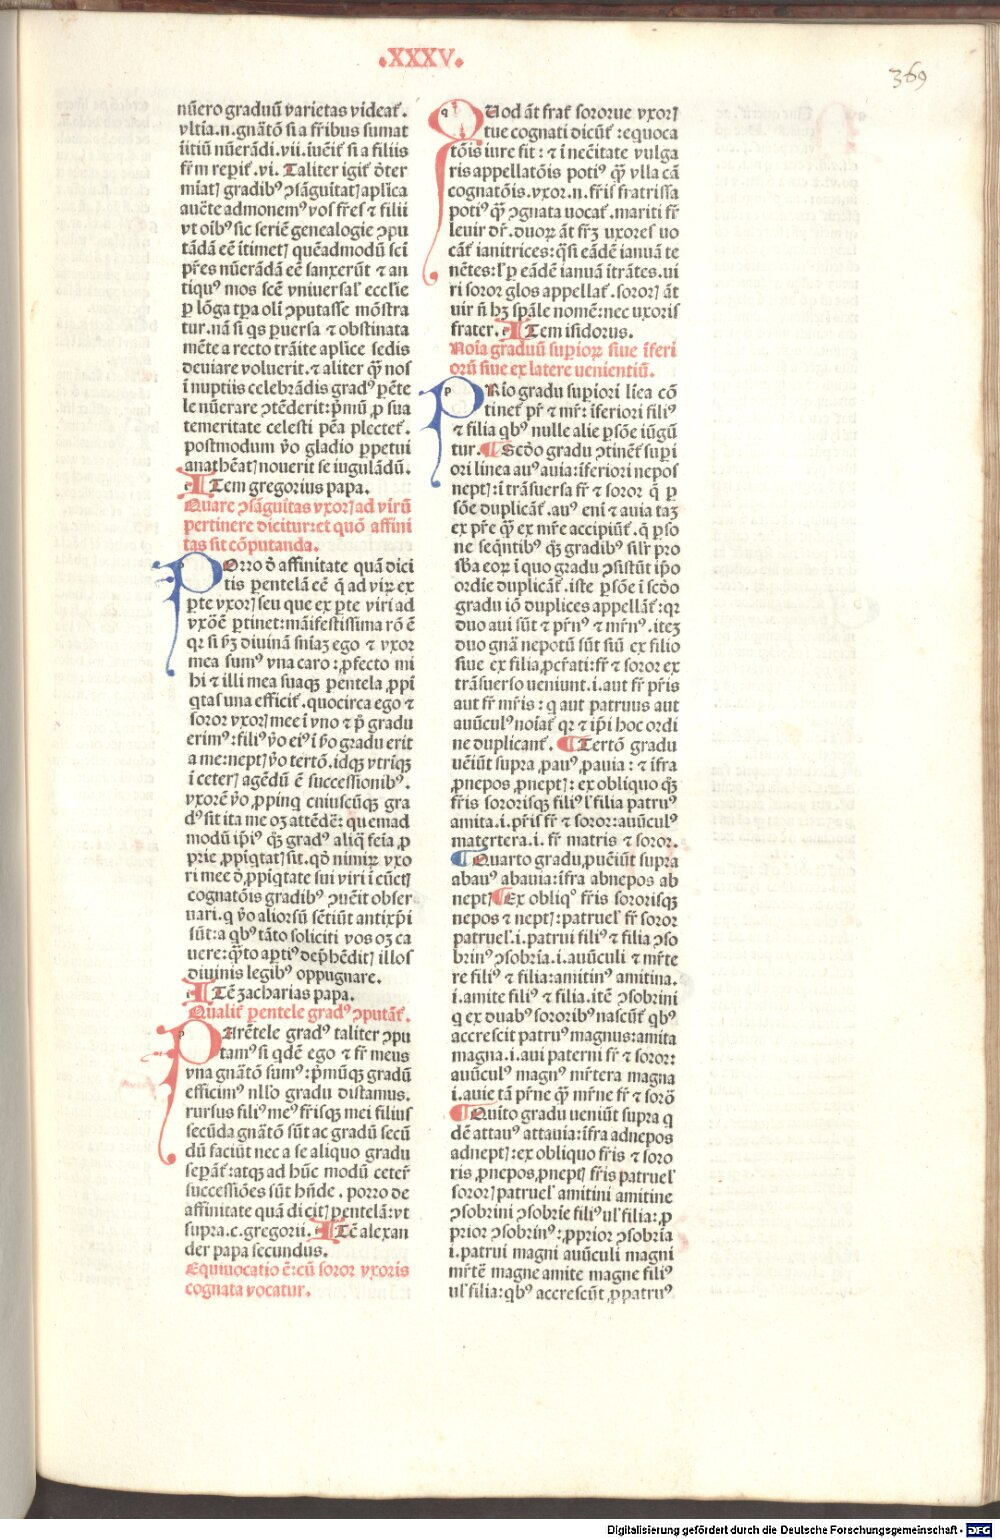 .XXXV.
369
nūero graduū varietas videat᷑.
vltīa.n.gnātō si a fr̄ibus sumat
iitiū nūerādi.vii.iuēit᷑ si a filiis
fr̄m repit᷑.vi. Taliter igit᷑ ōter
miatꝭ gradibꝰ ↄsāguitatꝭ apl̄ica
auc̄te admonemꝰ vos fr̄es ⁊ filii
vt oībꝰ sic seriē genealogie ↄpu
tādā eē ītimetꝭ quēadmodū sc̄i
pr̄es nūerādā eē sanxerūt ⁊ an
tiquꝰ mos sc̄e vniuersal᷑ eccl̄ie
ꝑ lōga tꝑa oli ↄputasse mōstra
tur.nā si qs ꝑuersa ⁊ obstinata
mēte a recto trāite apl̄ice sedis
deuiare voluerit.⁊ aliter q̄ꝫ nos
ī nuptiis celebrādis gradꝰ pēte
le nūerare ↄtēderit:pͥmū ꝓ sua
temeritate celesti pēa plectet᷑.
postmodum v̄o gladio ꝑpetui
anathēatꝭ nouerit se iugulādū.
Item gregorius papa.
Quare ↄsāguitas vxorꝭ ad virū
pertinere dicitur:et quō affini
tas sit cōputanda.
POrro ō affinitate quā dici
tis pentelā eē q̄ ad virꝝ ex
ꝑte vxorꝭ seu que ex ꝑte viri ad
vxōē ꝑtinet:māifestissima rō ē
qꝛ si ẜꝫ diuinā sniaꝫ ego ⁊ vxor
mea sumꝰ vna caro:ꝓfecto mi
hi ⁊ illi mea suaqꝫ pentela ꝓpi
qtas vna efficit᷑.quocirca ego ⁊
soror vxorꝭ mee ī vno ⁊ pͥ gradu
erimꝰ:filiꝰ v̄o eiꝰ ī ẜo gradu erit
a me:neptꝭ v̄o tertō.idqꝫ vtriqꝫ
ī ceterꝭ agēdū ē successionibꝰ.
vxorē v̄o ꝓpinq cuiuscūqꝫ gra
dꝰ sit ita me oꝫ attēdē:quemad
modū ip̄iꝰ qꝫ gradꝰ aliq̄ feīa ꝓ
prie ꝓpiqtatꝭ sit.qō nimiꝝ vxo
ri mee ō ꝓpiqtate sui viri ī cūctꝭ
cognatōis gradibꝰ ↄuēit obser
uari.q v̄o aliorsū sētiūt antixp̄i
sūt:a qbꝰ tāto soliciti vos oꝫ ca
uere:q̄to aꝑtiꝰ dep̄hēditꝭ illos
diuinis legibꝰ oppugnare.
Itē zacharias papa.
Qualit᷑ ꝑentele gradꝰ ↄputāt᷑.
PArētele gradꝰ taliter ↄpu
tamꝰ si qdē ego ⁊ fr̄ meus
vna gnātō sumꝰ:pͥmūqꝫ gradū
efficimꝰ nll̄o gradu distamus.
rursus filiꝰ meꝰ fr̄isqꝫ mei filius
secūda gnātō sūt ac gradū secū
dū faciūt nec a se aliquo gradu
seꝑāt᷑:atqꝫ ad hūc modū ceter᷑
successiōes sūt hn̄de.porro de
affinitate quā dicitꝭ pentelā:vt
supra.c.gregorii. Itē alexan
der papa secundus.
Equiuocatio ē:cū soror vxoris
cognata vocatur.
QUod āt frat᷑ sororue vxorꝭ
tue cognati dicūt᷑:equoca
tōis iure fit:⁊ ī nec̄itate vulga
ris appellatōis potiꝰ q̄ꝫ vlla cā
cognatōis.vxor.n.fr̄is fratrissa
potiꝰ q̄ꝫ ↄgnata uocat᷑.mariti fr̄
leuir dr̄.duoꝝ āt fr̄ꝫ uxores uo
cāt᷑ ianitrices:q̄si eādē ianuā te
nētes:l᷑ ꝑ eādē ianuā itrātes.ui
ri soror glos appellat᷑.sororꝭ āt
uir n̄ hꝫ sp̄ale nomē:nec uxoris
frater. Item isidorus.
Noīa graduū supioꝝ siue īferi
orū siue ex latere uenientiū.
PRīo gradu supiori līea cō
tinet᷑ pr̄ ⁊ mr̄:īferiori filiꝰ
⁊ filia qbꝰ nulle alie ꝑsōe iūgū
tur. Scd̄o gradu ↄtinēt᷑ supi
ori linea auꝰ auia:īferiori nepos
neptꝭ:ī trāsuersa fr̄ ⁊ soror q̄ ꝑ
sōe duplicāt᷑.auꝰ eni ⁊ auia taꝫ
ex pr̄e q̄ꝫ ex mr̄e accipiūt᷑.q̄ ꝑso
ne seq̄ntibꝰ qꝫ gradibꝰ sil̄r pro
sb̄a eoꝝ ī quo gradu ↄsistūt ip̄o
ordīe duplicāt᷑.iste ꝑsōe ī scd̄o
gradu iō duplices appellāt᷑:qꝛ
duo aui sūt ⁊ pr̄nꝰ ⁊ mr̄nꝰ.iteꝫ
duo gnā nepotū sūt siū ex filio
siue ex filia ꝓcr̄ati:fr̄ ⁊ soror ex
trāsuerso ueniunt.i.aut fr̄ pr̄is
aut fr̄ mr̄is:q aut patruus aut
auūculꝰ noīat᷑ qꝛ ⁊ ip̄i hoc ordi
ne duplicant᷑. Tertō gradu
uēiūt supra ꝓauꝰ ꝓauia:⁊ īfra
ꝓnepos ꝓneptꝭ:ex obliquo qꝫ
fr̄is sororisqꝫ filiꝰ l᷑ filia patruꝰ
amita.i.pr̄is fr̄ ⁊ soror:auūculꝰ
matertera.i.fr̄ matris ⁊ soror.
Quarto gradu ꝓuēiūt supra
abauꝰ abauia:īfra abnepos ab
neptꝭ Ex obliqͦ fr̄is sororisqꝫ
nepos ⁊ neptꝭ:patruel᷑ fr̄ soror
patruel᷑.i.patrui filiꝰ ⁊ filia ↄso
brinꝰ ↄsobria.i.auūculi ⁊ mr̄te
re filiꝰ ⁊ filia:amitinꝰ amitina.
i.amite filiꝰ ⁊ filia.itē ↄsobrini
q ex duabꝰ sororibꝰ nascūt᷑ qbꝰ
accrescit patruꝰ magnus:amita
magna.i.aui paterni fr̄ ⁊ soror:
auūculꝰ magnꝰ mr̄tera magna
i.auie tā pr̄ne q̄ꝫ mr̄ne fr̄ ⁊ sorō
Quīto gradu ueniūt supra q
dē attauꝰ attauia:īfra adnepos
adneptꝭ:ex obliquo fr̄is ⁊ soro
ris ꝓnepos ꝓneptꝭ fr̄is patruel᷑
sororꝭ patruel᷑ amitini amitine
ↄsobrini ↄsobrie filiꝰ ul᷑ filia:ꝓ
prior ↄsobrinꝰ:ꝓprior ↄsobria
i.patrui magni auūculi magni
mr̄tē magne amite magne filiꝰ
ul᷑ filia:qbꝰ accrescūt ꝓpatruꝰ
Digitalisierung gefördert durch die Deutsche Forschungsgemeinschaft - DFG